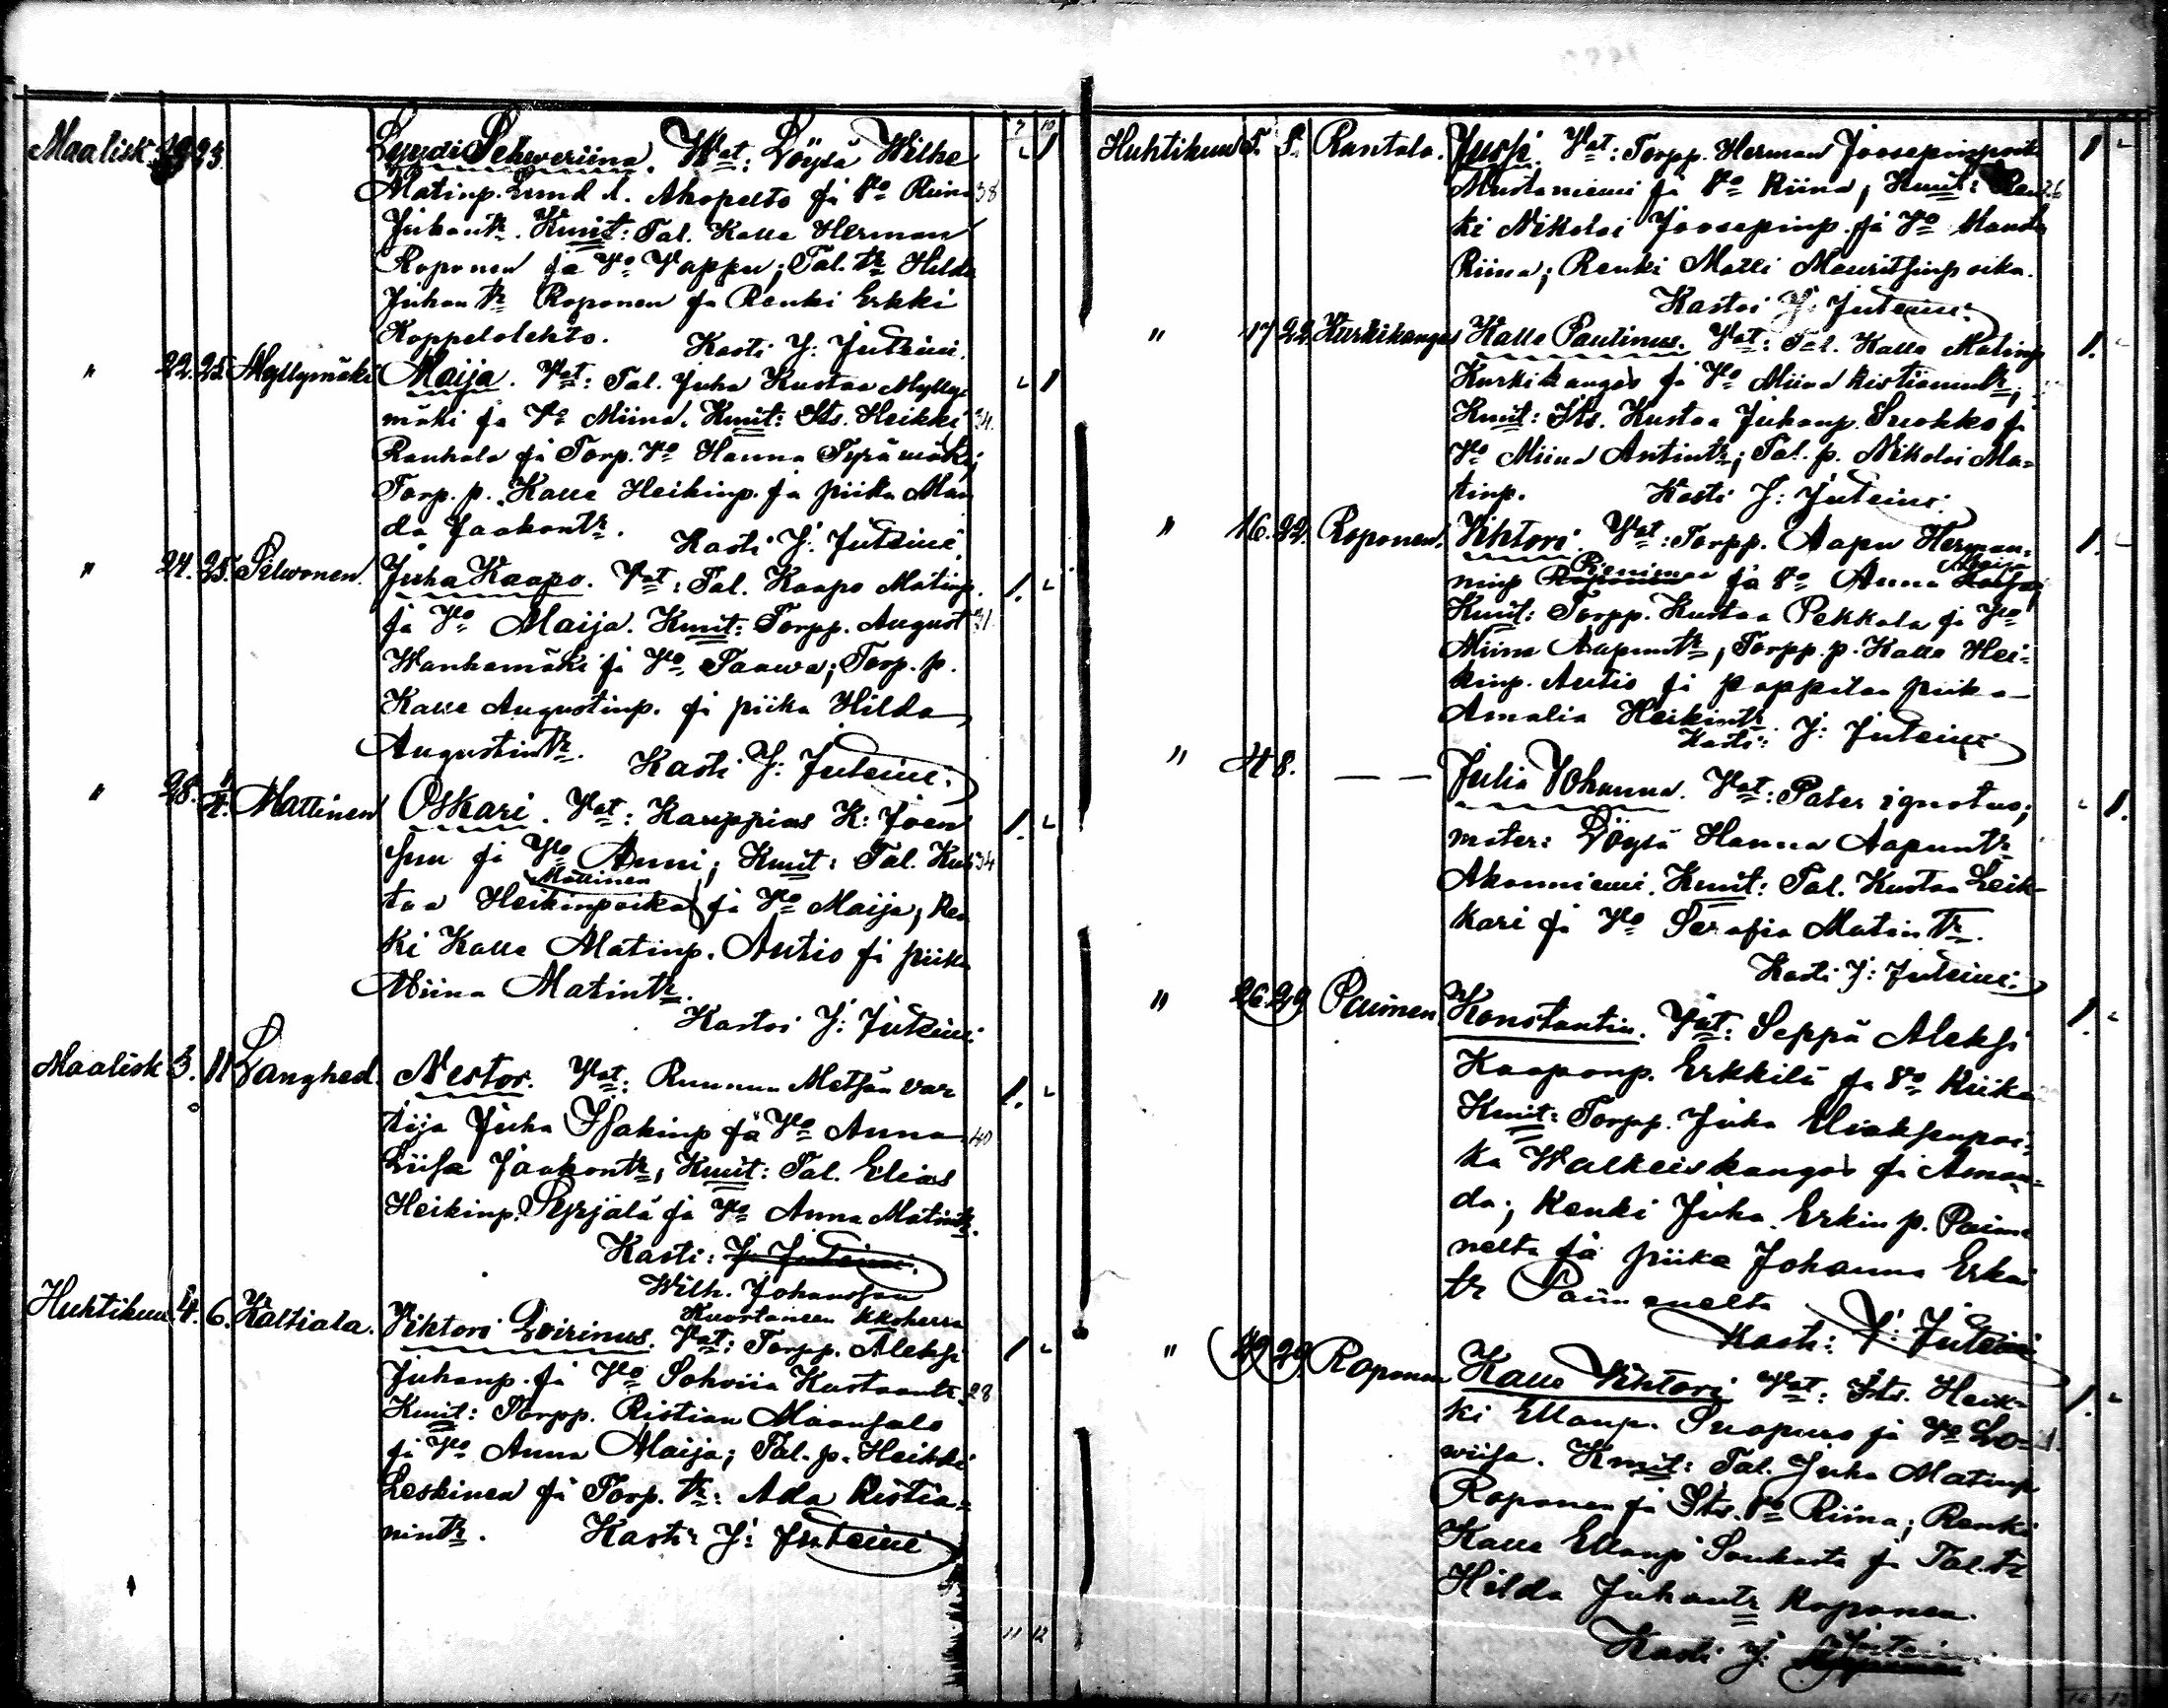 7 10
Maalisk 19 23. Lyydi Seweriina. Wat: Löysä Wilhe
Matinp. Lemd l. Ahopelto ja Vo Riina 38
Juhantr. Kmit: Tal. Kalle Herman
Roponen ja Vo Vappu; Tal. tr Hilda
Juhantr Roponen ja Renki Erkki
Koppelolehto. Kasti J: Juteini.
" 22. 25. Myllymäki Maija. Vat: Tal. Juha Kustaa Mylly-
mäki ja Vo Miina. Kmit: Its. Heikki 34.
Rauhala ja Torp. Vo Hanna Tyrämäki;
Torp. p. Kalle Heikinp. ja piika Man
da Jaakontr. Kasti J: Juteini.
" 24. 25. Pelwonen. Juha Kaapo. Vat: Tal. Kaapo Matinp. 1.
ja Vo Maija. Kmit: Torpp. August 31
Wanhamäki ja Vo Taawa; Torp. p.
Kalle Augustinp. ja piika Hilda
Augustintr. Kasti J: Juteini.
" 28. 1/4. Mattinen Oskari. Vat: Kauppias K: Joen 1.
suu ja Vo Anni; Kmit: Tal. Kus 34
Mattinen
taa Heikinpoika ja Vo Maija; Ren
ki Kalle Matinp. Autio ja piika
Miina Matintr.
Kastoi J: Juteini
Maalisk 3. 11 Langhed. Nestor. Vat: Ruunun Metsän var 1.
tija Juha Isakinp ja Vo Anna 40
Liisa Jaakontr, Kmit: Tal. Elias
Heikinp. Syrjälä ja Vo Anna Matintr.
Kasti: J: Juteini.
Wilh. Johansson
Kuortaneen kkoherra
Huhtikuu 4. 6. Kaltiala. Viktori Qvirinus. Vat: Torpp. Aleksi 1
Juhanp. ja Vo Sohviia Kustaantr 28
Kmit: Torpp. Ristian Maansalo
ja Vo Anna Maija; Tal. p. Heikki
Leskinen ja Torp. tr: Ada Ristia-
nintr. Kasti J: Juteini
11 12
Huhtikuu 5. 8. Rantala. Jussi. Vat: Torpp. Herman Joosepinpoik 1
Mustaniemi ja Vo Riina; Kmit: Ren 26
ki Nikolai Joosepinp. ja Vo Manda
Riina; Renki Matti Mauritsinpoika.
Kastoi J: Juteini.
" 17 22 Kurkikangas Kalle Paulinus. Vat: Tal. Kalle Matinp 1.
Kurkikangas ja Vo Miina Kistianintr;
Kmit: Its. Kustaa Juhanp. Suokko ja
Vo Miina Antintr; Tal. p. Nikolai Ma-
tinp. Kasti J: Juteini.
" 16. 22. Roponen. Vihtori. Vat: Torpp. Aapu Herman- 1.
Maija
ninp Roponen ja Vo Anna Kaisa;
Kmit: Torpp. Kustaa Pekkala ja Vo
Miina Aapuntr, Torpp. p. Kalle Hei-
kinp. Autio ja pappilan piika
Amalia Heikintr
Kasti: J: Juteini
" 4 8. — — Julia Johanna. Vat: Pater ignotus; 1.
mater: Löysä Hanna Aapuntr
Akonniemi. Kmit: Tal. Kustaa Leik-
kari ja Vo Serafia Matintr.
Kasti J: Juteini.
" 26. 29. Paimen. Konstantin. Vat: Seppä Aleksi 1.
Kaaponp. Erkkilä ja Vo Riika
Kmit: Torpp. Juha Eliaksenpoi-
ka Walkeiskangas ja Aman-
da; Renki Juha Erkin p. Paime
nelta ja piika Johanna Erkin
tr Paimenelta
Kasti: J: Juteini
" 29 Roponen Kalle Vihtori Vat: Its. Heik- 1.
ki Ellanp. Suopuro ja Vo Lo-
wiisa. Kmit: Tal. Juha Matinp
Roponen ja Its. Vo Riina; Renki
Kalle Ellanp Soukasta ja Tal. tr
Hilda Juhantr Roponen.
Kasti J: Juteini